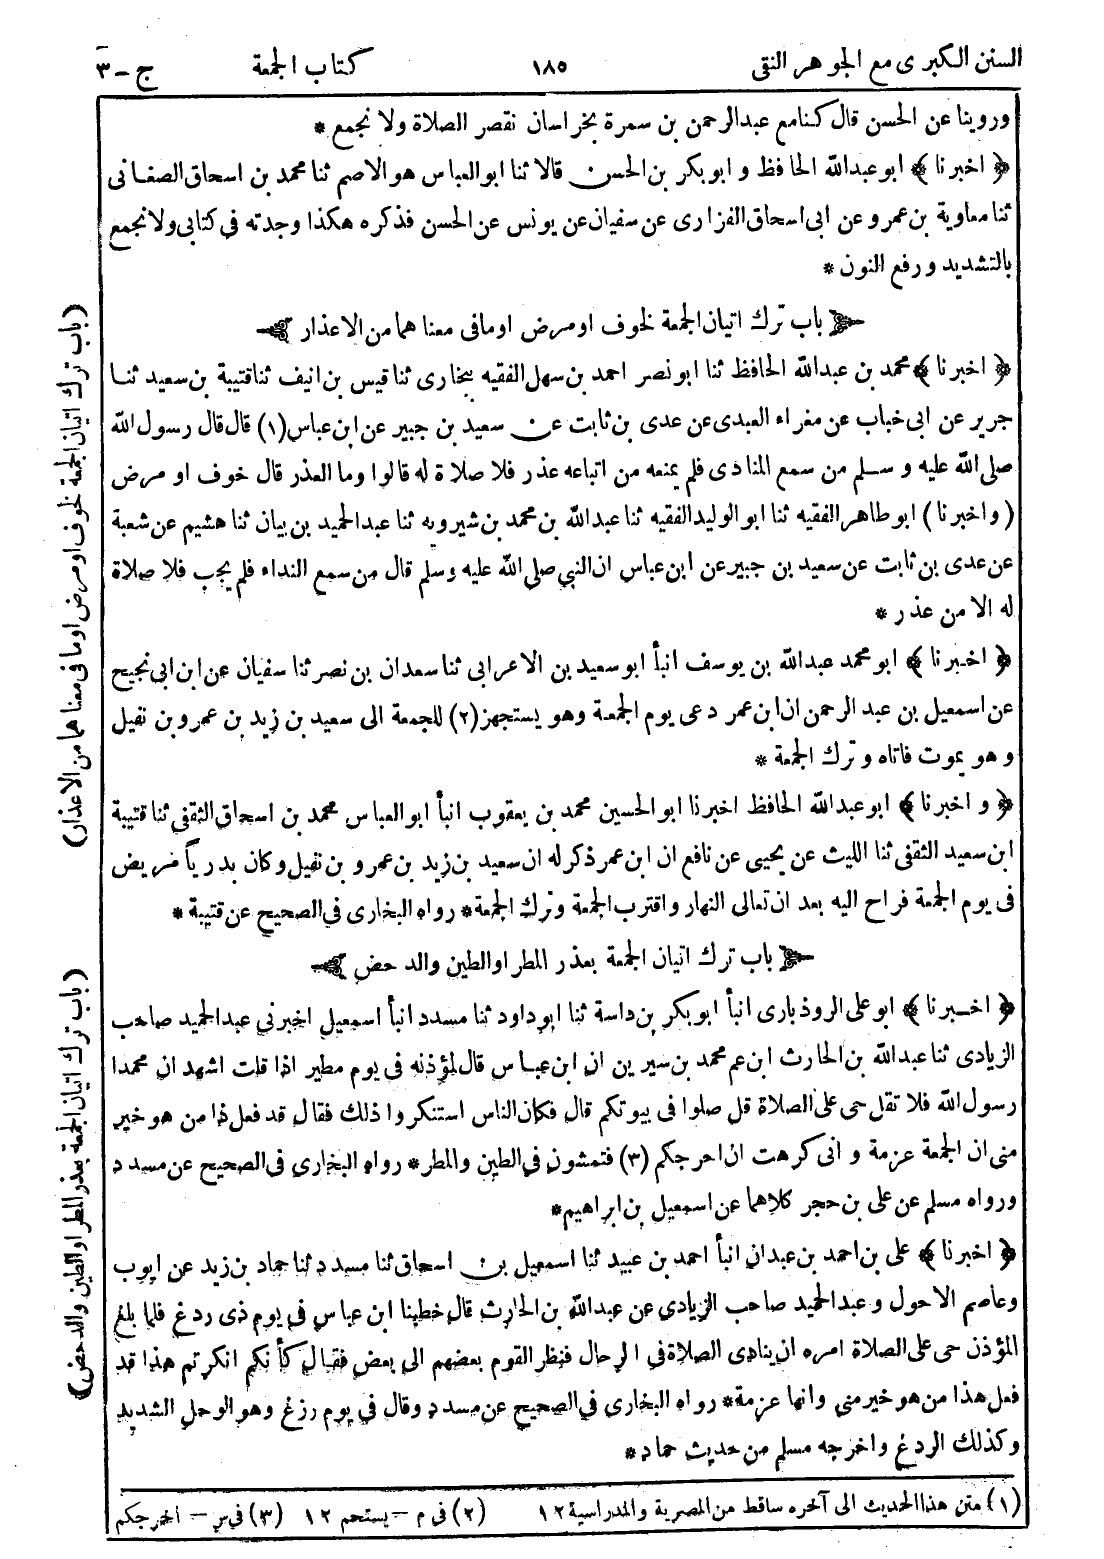 السنن الكبرى مع الجوهر النقى ١٨٥ كتاب الجمعة ج - ٣
وروينا عن الحسن قال كنا مع عبدالرحمن بن سمرة بخراسان نقصر الصلاة ولا نجمع *
﴿ اخبرنا ﴾ ابو عبدالله الحافظ و ابوبكر بن الحسن قالا ثنا ابوالعباس هو الاصم ثنا محمد بن اسحاق الصغانى
ثنا معاوية بن عمرو عن ابى اسحاق الفزارى عن سفيان عن يونس عن الحسن فذكره هكذا وجدته فى كتابى ولا نجمع
بالتشديد ورفع النون *
باب ترك اتيان الجمعة لخوف اومرض اومافى معناهما من الاعذار
﴿ اخبرنا ﴾ محمد بن عبدالله الحافظ ثنا ابو نصر احمد بن سهل الفقيه ببخارى ثنا قيس بن انيف ثنا قتيبة بن سعيد ثنا
جرير عن ابى خباب عن مغراء العبدى عن عدى بن ثابت عن سعيد بن جبير عن ابن عباس (١) قال قال رسول الله
صلى الله عليه وسلم من سمع المنادى فلم يمنعه من اتباعه عذر فلا صلاة له قالوا وما العذر قال خوف او مرض
( واخبرنا ) ابو طاهر الفقيه ثنا ابو الوليد الفقيه ثنا عبدالله بن محمد بن شيرويه ثنا عبدالحميد بن بيان ثنا هشيم عن شعبة
عن عدى بن ثابت عن سعيد بن جبير عن ابن عباس ان النبي صلى الله عليه وسلم قال من سمع النداء فلم يجب فلا صلاة
له الا من عذر *
﴿ اخبرنا ﴾ ابو محمد عبدالله بن يوسف انبأ ابو سعيد بن الاعرابى ثنا سعدان بن نصر ثنا سفيان عن ابن ابى نجيح
عن اسمعيل بن عبد الرحمن ان ابن عمر دعى يوم الجمعة وهو يستجهز (٢) للجمعة الى سعيد بن زيد بن عمرو بن نفيل
وهو يموت فاتاه وترك الجمعة *
﴿ و اخبرنا ﴾ ابو عبدالله الحافظ اخبرنا ابو الحسين محمد بن يعقوب انبأ ابو العباس محمد بن اسحاق الثقفى ثنا قتيبة
ابن سعيد الثقفى ثنا الليث عن يحيى عن نافع ان ابن عمر ذكر له ان سعيد بن زيد بن عمرو بن نفيل وكان بدرياً مريض
فى يوم الجمعة فراح اليه بعد ان تعالى النهار واقترب الجمعة وترك الجمعة * رواه البخارى فى الصحيح عن قتيبة *
باب ترك اتيان الجمعة بعذر المطر اوالطين والدحض
﴿ اخبرنا ﴾ ابو على الروذبارى انبأ ابو بكر بن داسة ثنا ابو داود ثنا مسدد انبأ اسمعيل اخبرني عبدالحميد صاحب
الزيادى ثنا عبدالله بن الحارث ابن عم محمد بن سيرين ان ابن عباس قال لمؤذنه فى يوم مطير اذا قلت اشهد ان محمدا
رسول الله فلا تقل حى على الصلاة قل صلوا فى بيوتكم قال فكان الناس استنكروا ذلك فقال قد فعل ذا من هو خير
منى ان الجمعة عزمة و انى كرهت ان احرجكم (٣) فتمشون فى الطين والمطر * رواه البخارى فى الصحيح عن مسدد
ورواه مسلم عن على بن حجر كلاهما عن اسمعيل بن ابراهيم *
﴿ اخبرنا ﴾ على بن احمد بن عبدان انبأ احمد بن عبيد ثنا اسمعيل بن اسحاق ثنا مسدد ثنا حماد بن زيد عن ايوب
وعاصم الاحول وعبدالحميد صاحب الزيادى عن عبدالله بن الحارث قال خطبنا ابن عباس فى يوم ذى ردغ فلما بلغ
المؤذن حى على الصلاة امره ان ينادى الصلاة فى الرحال فنظر القوم بعضهم الى بعض فقال كأنكم انكرتم هذا قد
فعل هذا من هو خير منى وانها عزمة * رواه البخارى فى الصحيح عن مسدد وقال فى يوم رزغ وهو الوحل الشديد
وكذلك الردغ واخرجه مسلم من حديث حماد *
(١) متن هذا الحديث الى آخره ساقط من المصرية والمدراسية ١٢ (٢) فى م - يستحم ١٢ (٣) فى س - اخرجكم
(باب ترك اتيان الجمعة لخوف اومرض اومافى معناهما من الاعذار)
(باب ترك اتيان الجمعة بعذر المطر اوالطين والدحض)